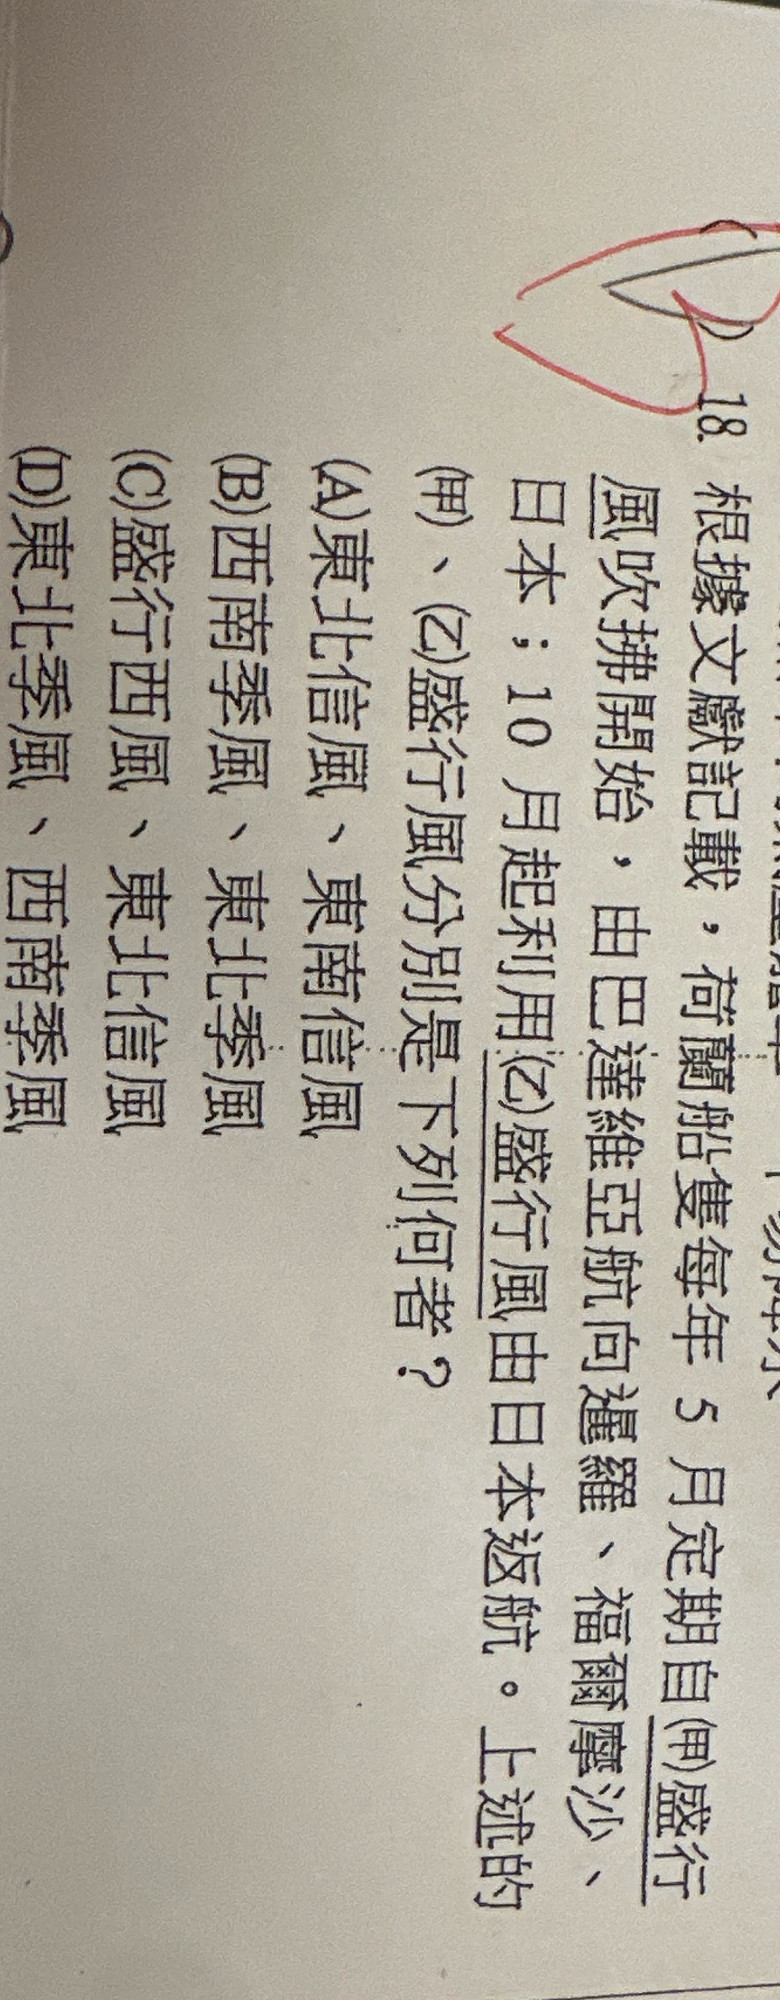 ( ) 18. 根據文獻記載，荷蘭船隻每年 5 月定期自(甲)盛行
風吹拂開始，由巴達維亞航向暹羅、福爾摩沙、
日本；10 月起利用(乙)盛行風由日本返航。上述的
(甲)、(乙)盛行風分別是下列何者？
(A)東北信風、東南信風
(B)西南季風、東北季風
(C)盛行西風、東北信風
(D)東北季風、西南季風